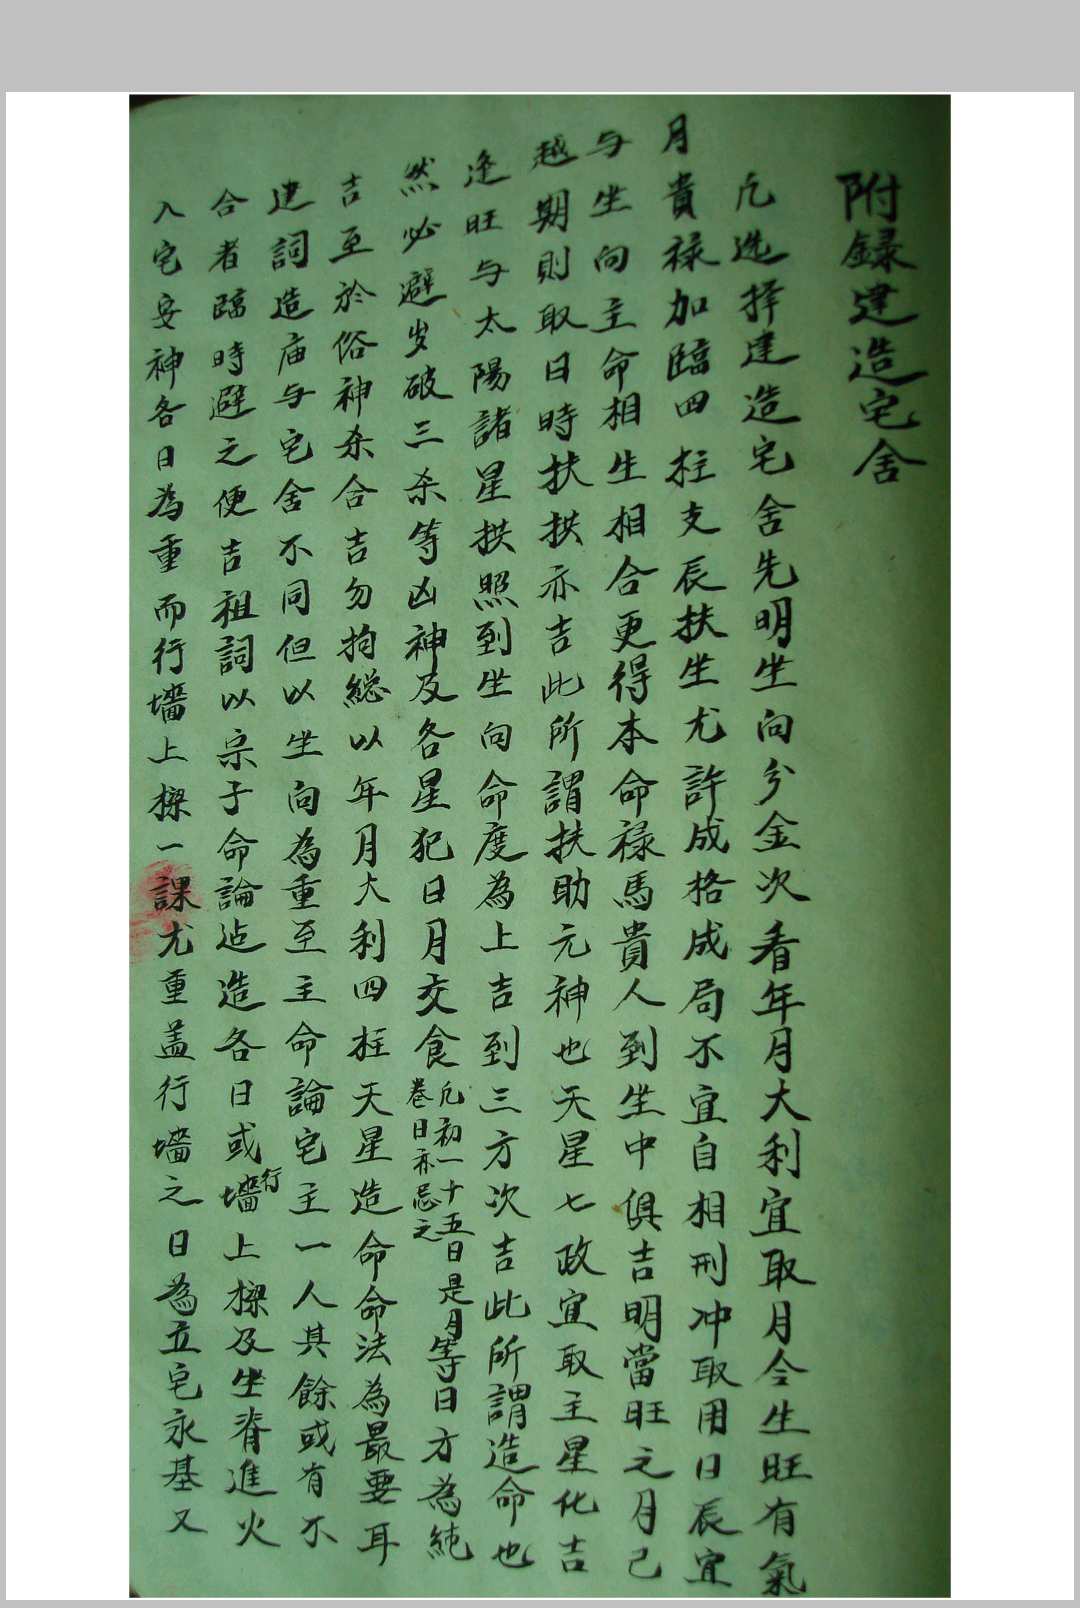 附録建造宅舍
凢选择建造宅舍先明坐向分金次看年月大利宜取月令生旺有氣
月貴禄加臨四柱支辰扶坐尤許成格成局不宜自相刑冲取用日辰宜
与坐向主命相生相合更得本命禄馬貴人到坐中俱吉明當旺之月己
越期則取日時扶拱亦吉此所謂扶助元神也天星七政宜取主星化吉
逢旺与太陽諸星拱照到坐向命度為上吉到三方次吉此所謂造命也
然必避岁破三杀等凶神及各星犯日月交食凢初一十五日是月巻日亦忌之等日方為純
吉至於俗神杀合吉勿拘総以年月大利四柱天星造命命法為最要耳
建祠造庙与宅舍不同但以坐向為重至主命論宅主一人其餘或有不
合者臨時避之便吉祖祠以宗子命論迠造各日或行墻上樑及坐脊進火
入宅安神各日為重而行墻上樑一課尤重盖行墻之日為立宅永基又